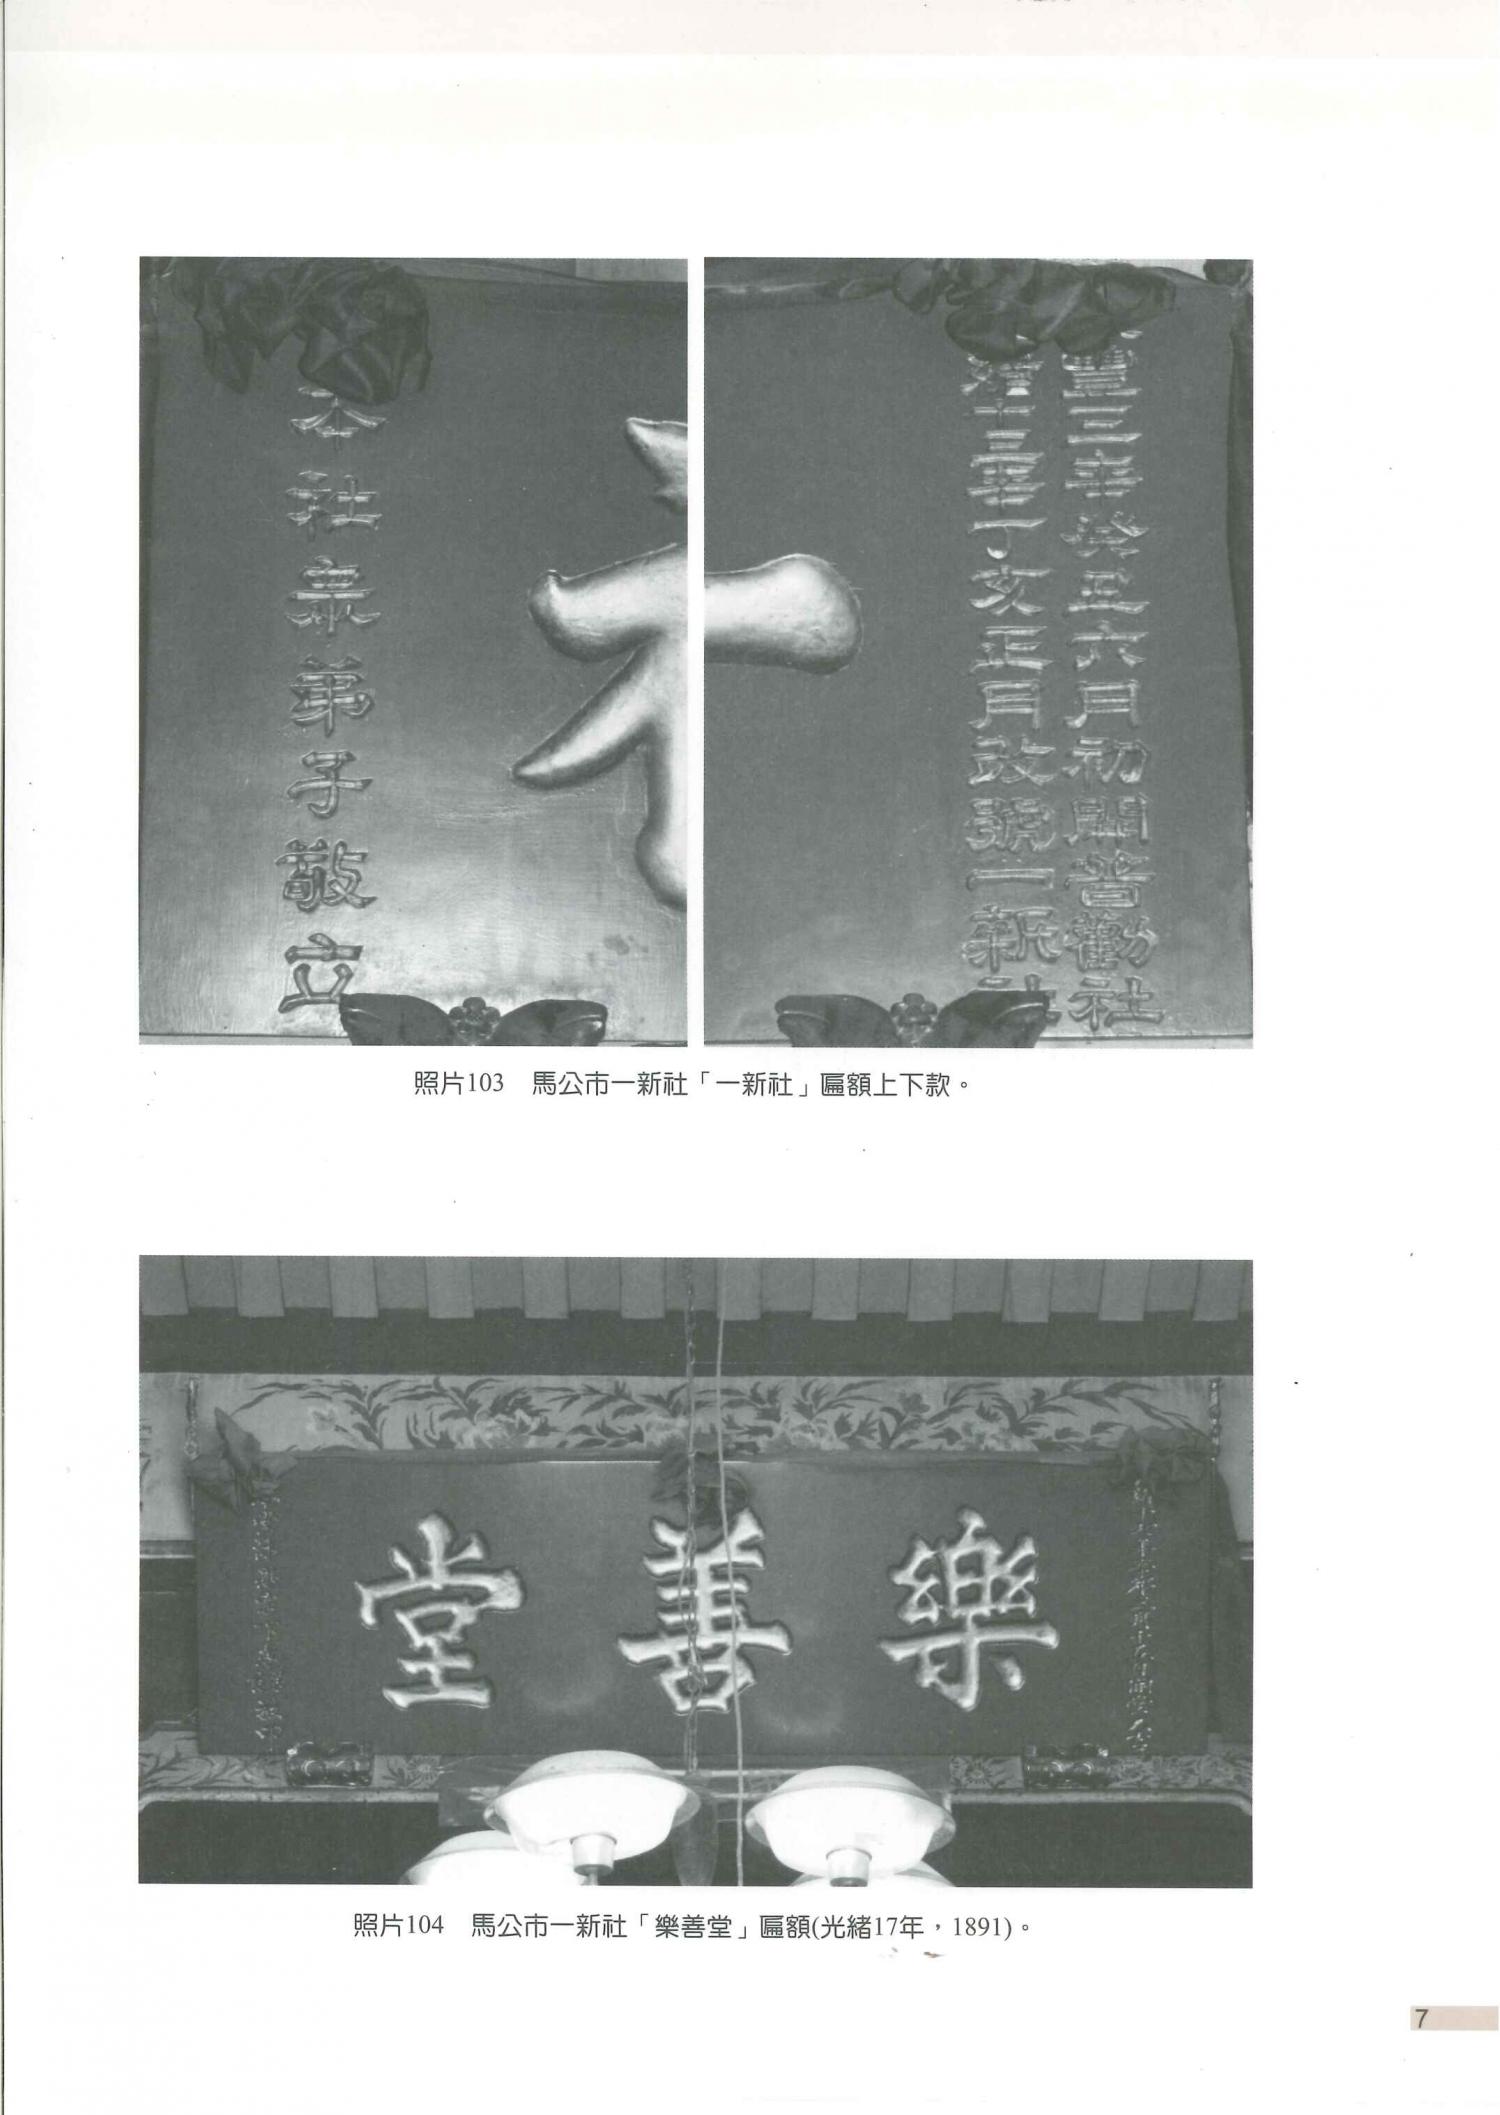 本社衆弟子敬立
豐三年癸丑六月初開普勸社
緒十三年丁亥正月改號一新社
照片103 馬公市一新社「一新社」匾額上下款。
樂善堂
照片104 馬公市一新社「樂善堂」匾額(光緒17年，1891)。
7